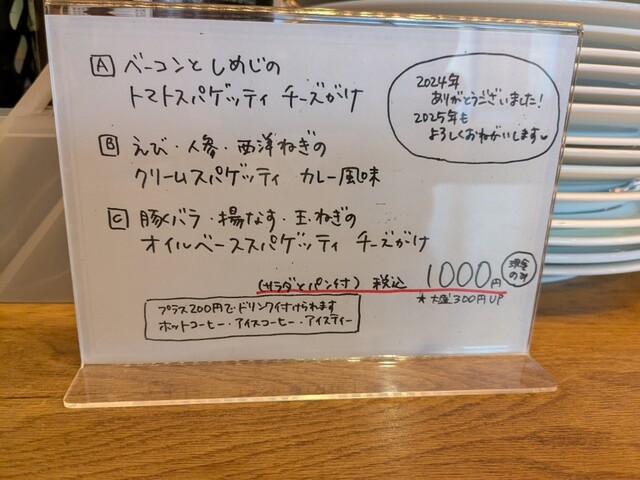 A ベーコンとしめじの
トマトスパゲッティ チーズがけ
2024年
ありがとうございました!
2025年も
よろしくおねがいします♥
B えび・人参・西洋ねぎの
クリームスパゲッティ カレー風味
C 豚バラ・揚なす・玉ねぎの
オイルベーススパゲッティ チーズがけ
(サラダとパン付) 税込 1000円
現金
のみ
★大盛300円UP
プラス200円で・ドリンク付けられます
ホットコーヒー・アイスコーヒー・アイスティー